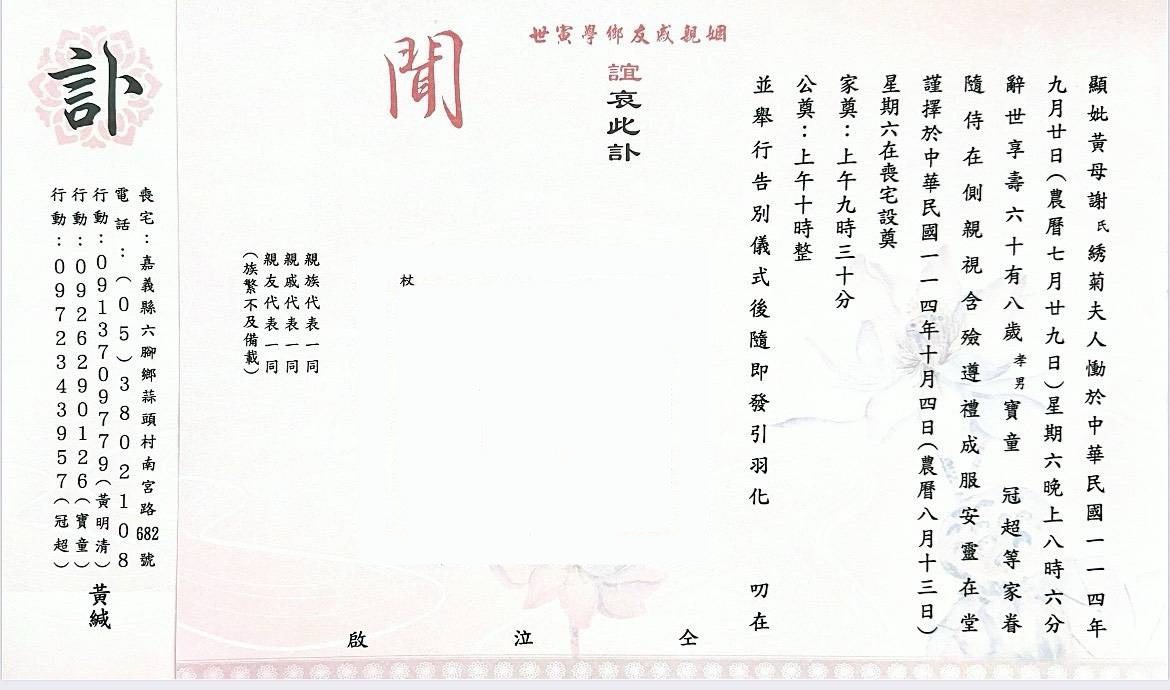 顯妣黃母謝氏綉菊夫人慟於中華民國一一四年
九月廿日(農曆七月廿九日)星期六晚上八時六分
辭世享壽六十有八歲孝男寶童 冠超等家眷
隨侍在側親視含殮遵禮成服安靈在堂
謹擇於中華民國一一四年十月四日(農曆八月十三日)
星期六在喪宅設奠
家奠:上午九時三十分
公奠:上午十時整
並舉行告別儀式後隨即發引羽化 叨在
姻親戚友鄉學寅世
誼哀此訃
聞
仝
泣
啟
杖
親族代表一同
親戚代表一同
親友代表一同
(族繁不及備載)
訃
喪宅:嘉義縣六腳鄉蒜頭村南宮路682號
電話:(05)3802108
行動:0913709779(黃明清)
行動:0926290126(寶童)
行動:0972343957(冠超)
黃緘